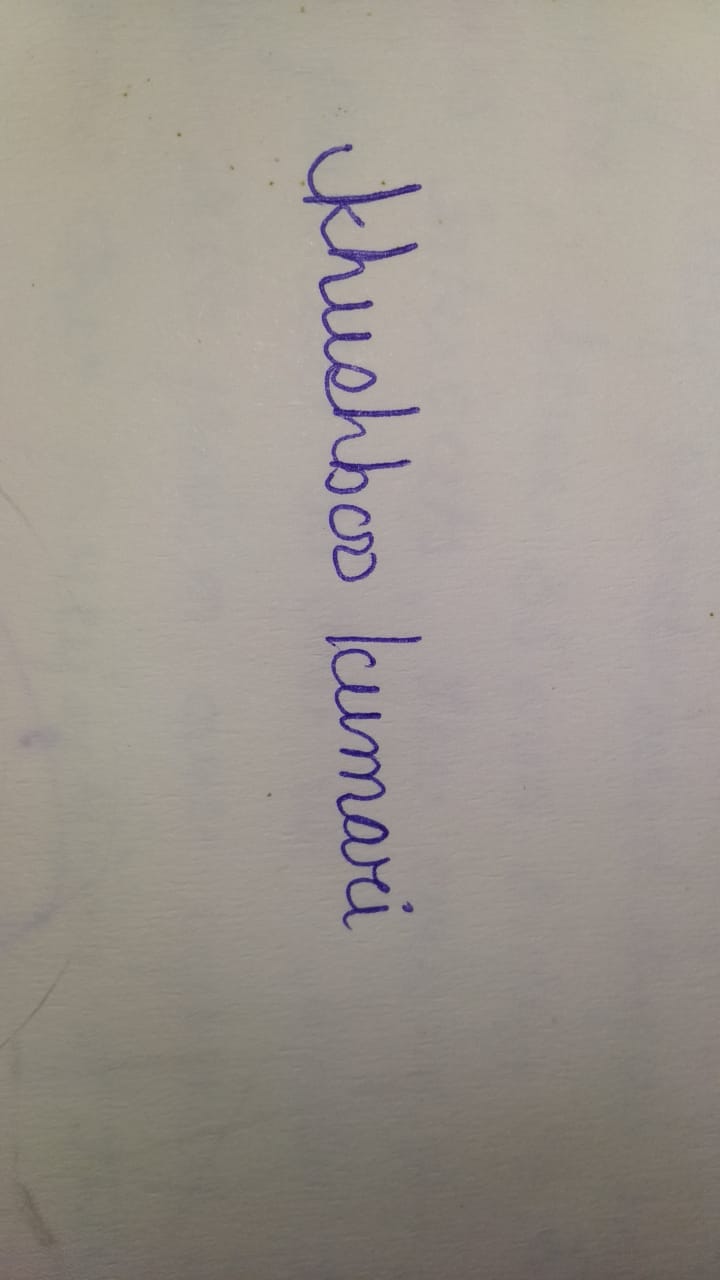 khushboo kumari